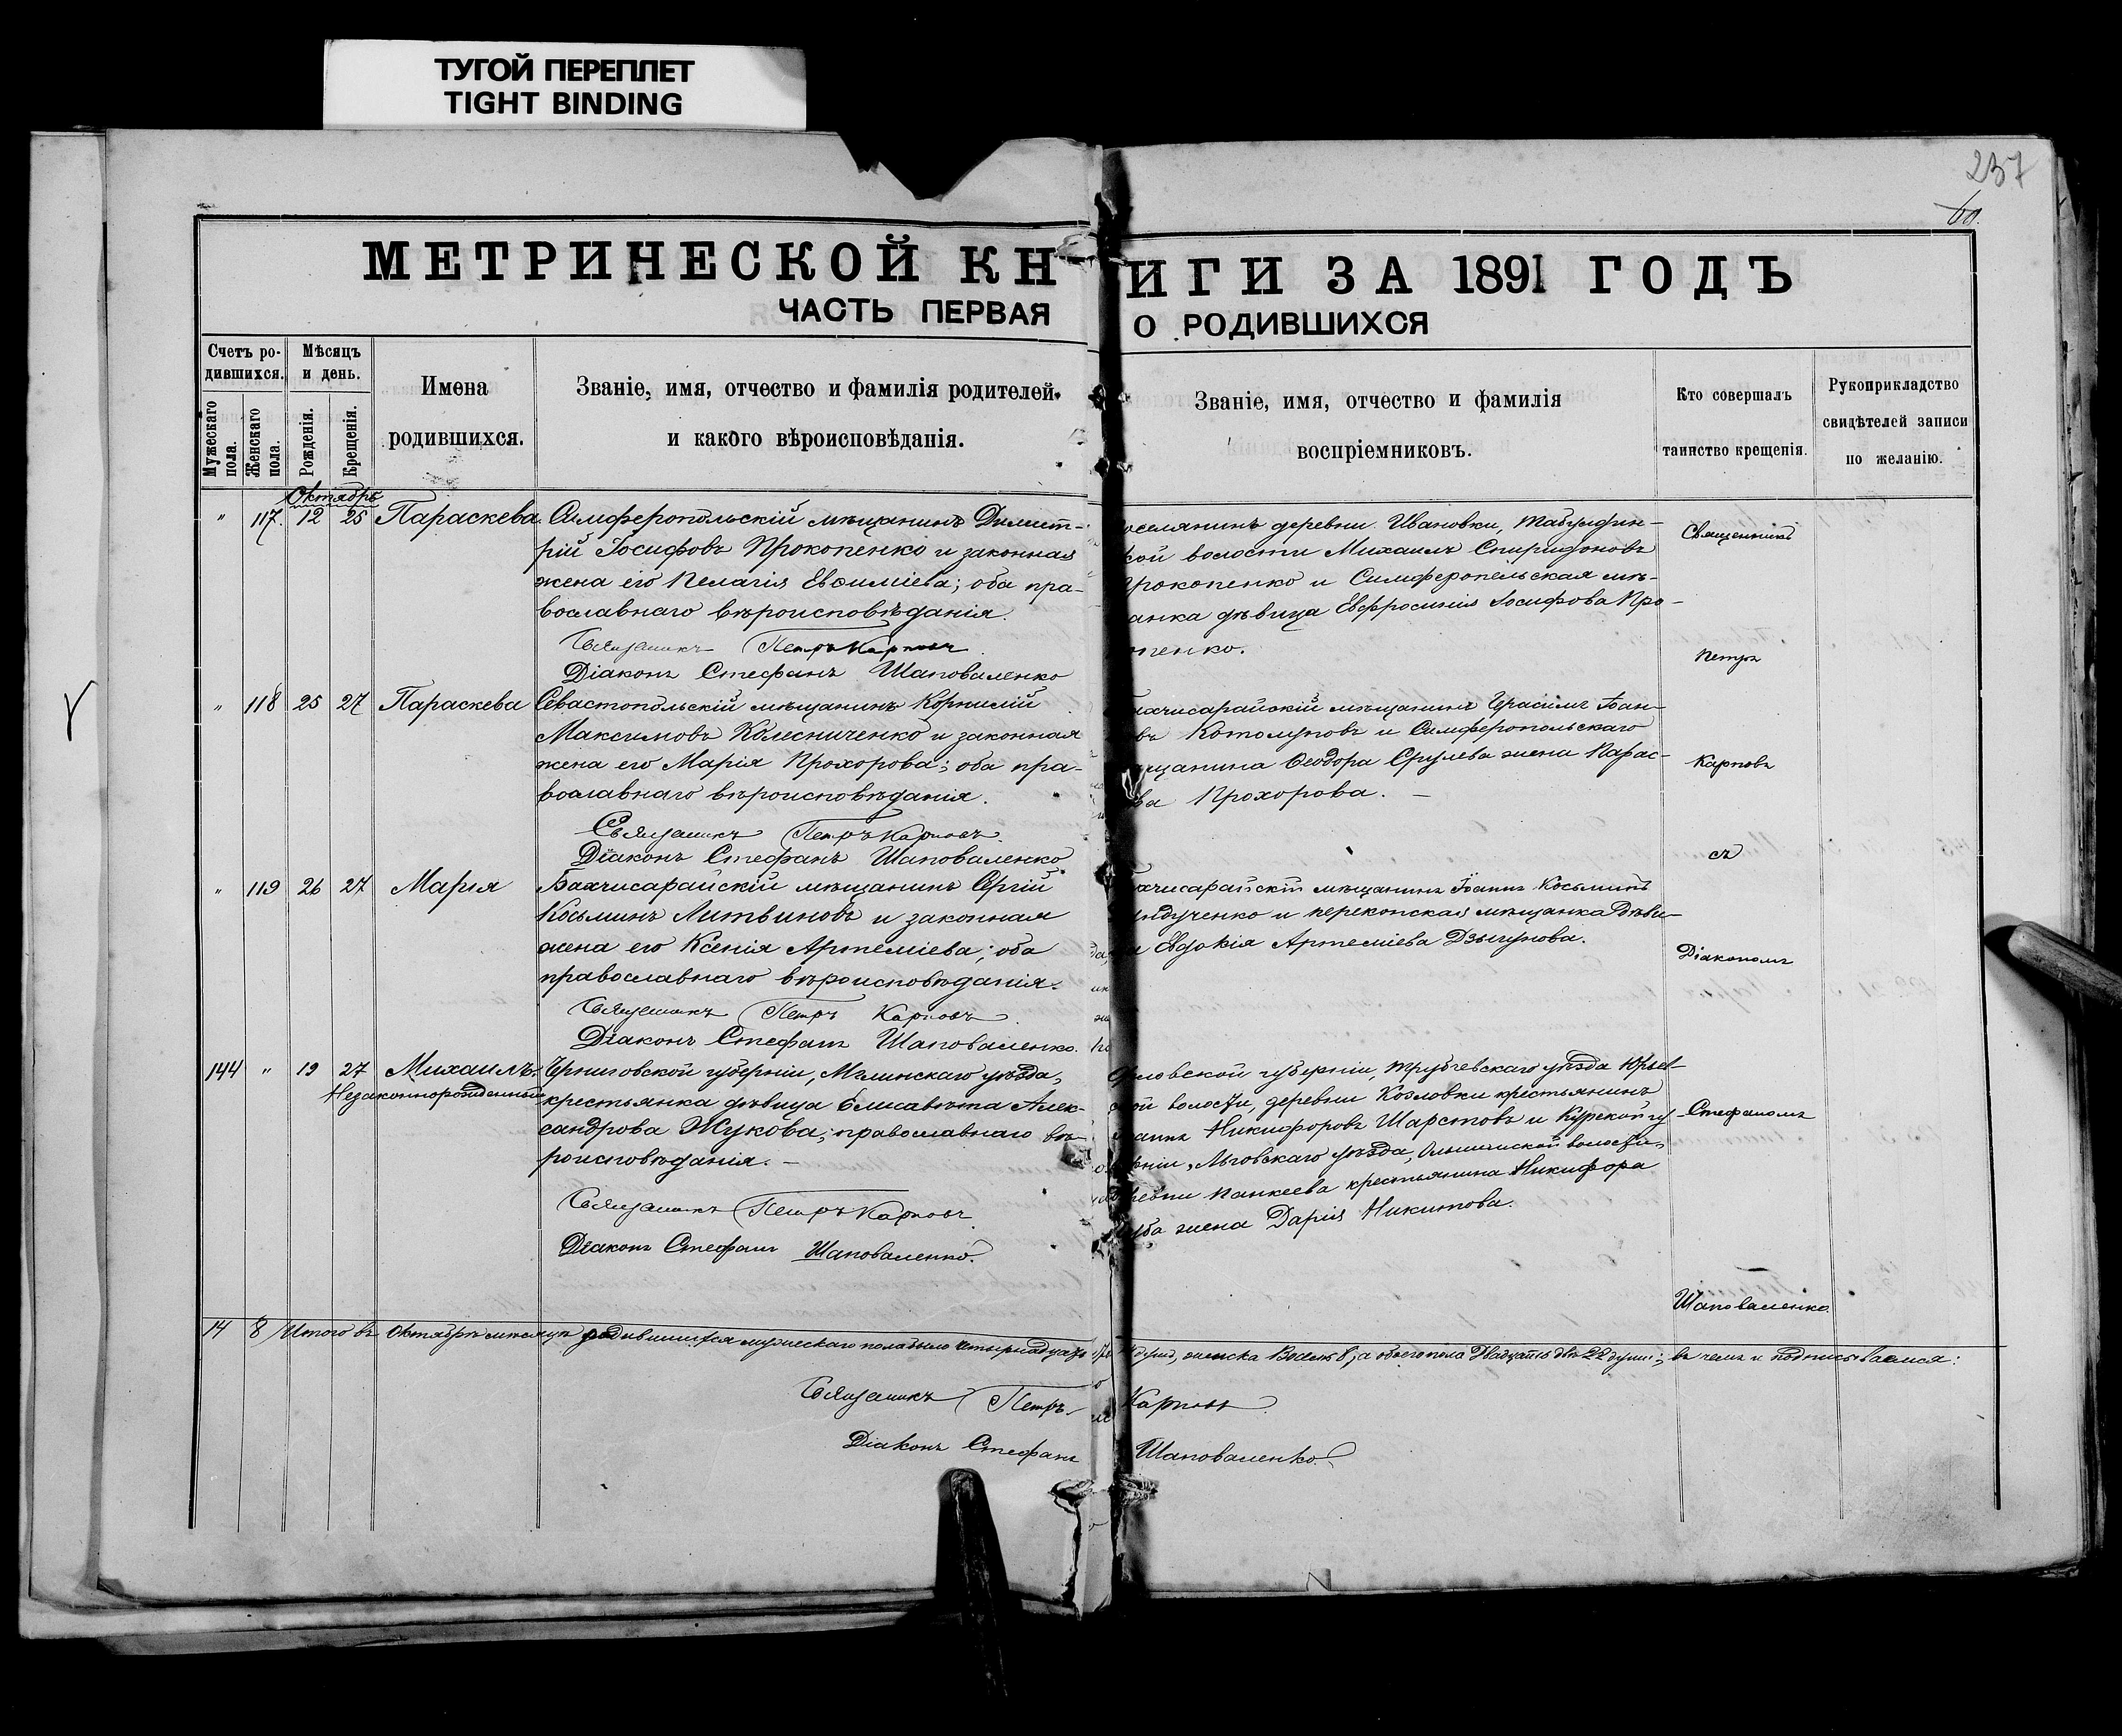 ТУГОЙ ПЕРЕПЛЕТ
TIGHT BINDING
237
60.
МЕТРИЧЕСКОЙ КНИГИ ЗА 1891 ГОДЪ
ЧАСТЬ ПЕРВАЯ О РОДИВШИХСЯ
Счетъ ро-
дившихся.
Мужескаго пола.
Женскаго пола.
Мѣсяцъ
и день.
Рожденія.
Крещенія.
Имена
родившихся.
Званіе, имя, отчество и фамилія родителей.
и какого вѣроисповѣданія.
Званіе, имя, отчество и фамилія
воспріемниковъ.
Кто совершалъ
таинство крещенія.
Рукоприкладство
свидѣтелей записи
по желанію.
Октябрь
" 117. 12 25 Параскева
Симферопольскій мѣщанинъ Димит-
рій Іосифовъ Прокопенко и законная
жена его Пелагія Евѳиміева; оба пра-
вославнаго вѣроисповѣданія.
Священникъ Петръ Карповъ
Діаконъ Стефанъ Шаповаленко
оселянинъ деревни Ивановки,
кой волости Михаилъ Спиридоновъ
рокопенко и Симферопольская мѣ-
анка дѣвица Евфросинія Іосифова Про-
пенко.
" 118 25 27 Параскева
Севастопольскій мѣщанинъ Корнилій
Максимовъ Колесниченко и законная
жена его Марія Прохорова; оба пра-
вославнаго вѣроисповѣданія.
Священникъ Петръ Карповъ
Діаконъ Стефанъ Шаповаленко
ахчисарайскій мѣщанинъ Герасимъ Іоан-
въ и Симферопольскаго
щанина Ѳеодора жена Парас-
ва Прохорова. —
" 119 26 27 Марія
Бахчисарайскій мѣщанинъ Сергій
Косьминъ Литвиновъ и законная
жена его Ксенія Артеміева; оба
православнаго вѣроисповѣданія.
Священникъ Петръ Карповъ
Діаконъ Стефанъ Шаповаленко.
хчисарайскій мѣщанинъ Іоаннъ Косьминъ
ндученко и перекопская мѣщанка дѣви-
Евдокія Артеміева Дзыгунова.
144 " 19 27 Михаилъ
Незаконнорожденный
Черниговской губерніи, Мглинскаго уѣзда,
крестьянка дѣвица Елисавета Алек-
сандрова Жукова; православнаго вѣ-
роисповѣданія. —
Священникъ Петръ Карповъ
Діаконъ Стефанъ Шаповаленко.
рловской губерніи, Трубчевскаго уѣзда
ой волости, деревни Козловки крестьянинъ
оаннъ Никифоровъ Шарстовъ и Курской гу-
рніи, Льговскаго уѣзда, волости,
ревни Панкеева крестьянина Никифора
жена Дарія Никитова.
Священникъ
Петръ
Карповъ
съ
Діакономъ
Стефаномъ
Шаповаленко
14 8 Итого въ Октябрѣ мѣсяцѣ родившихся мужескаго пола было четырнадцать душъ, женска Восемь 8, а обоего пола Двадцать двѣ 22 души; въ чемъ и подписываемся:
Священникъ Петръ Карповъ
Діаконъ Стефанъ Шаповаленко.